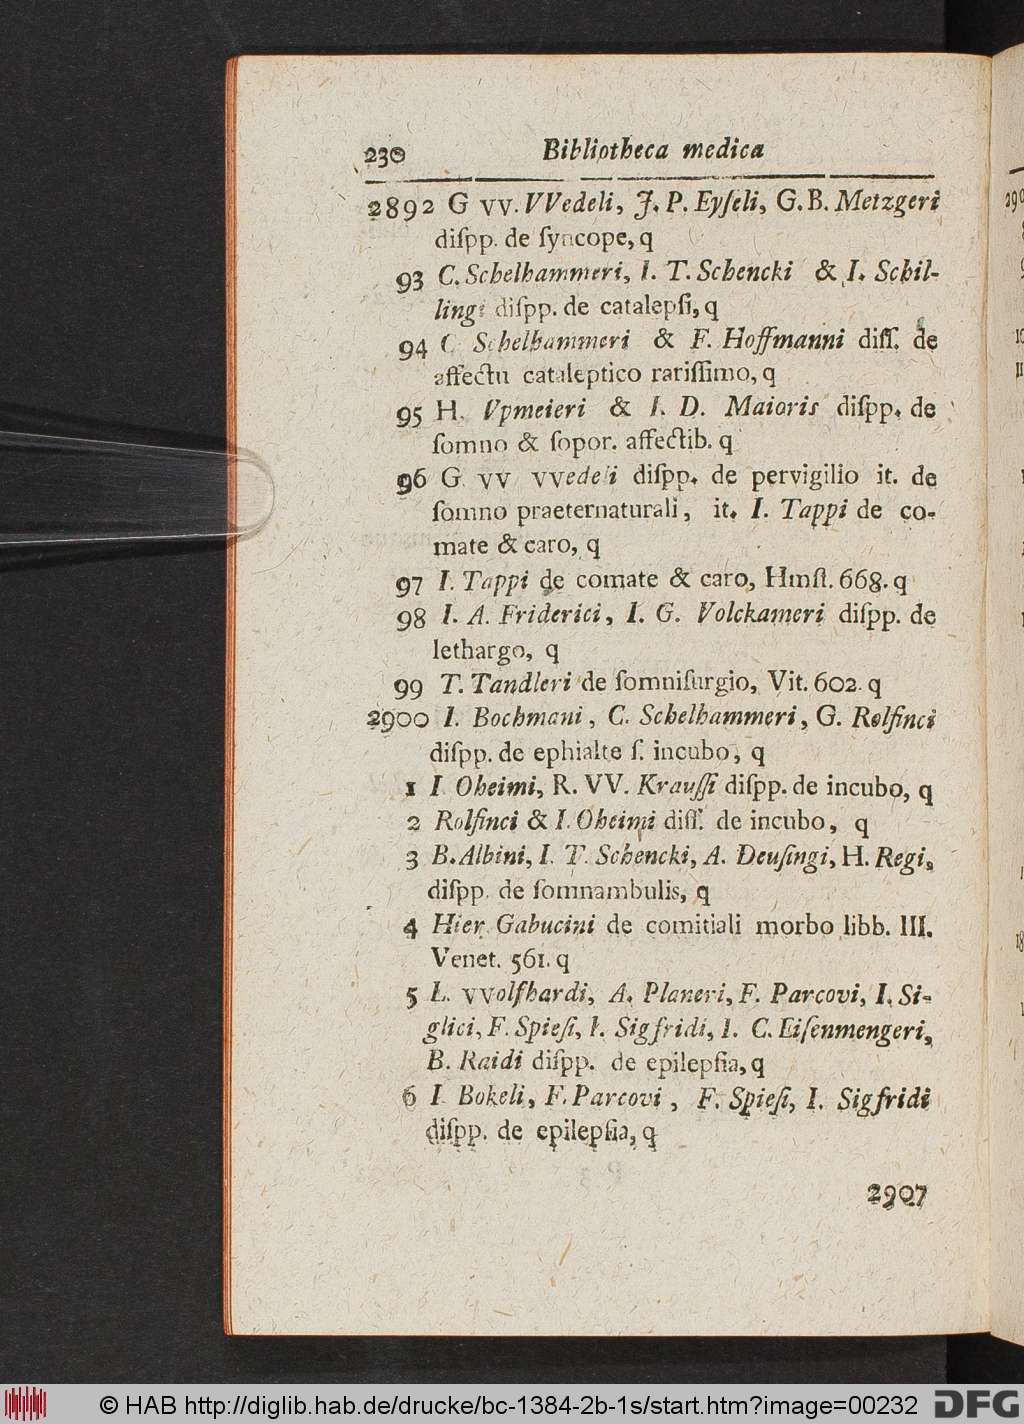 230 Bibliotheca medica
2892 G vv. VVedeli, J. P. Eyſeli, G. B. Metzgeri
diſpp. de ſyncope, q
93 C. Schelhammeri, I. T. Schencki & I. Schil-
lingi diſpp. de catalepſi, q
94 C Schelhammeri & F. Hoffmanni diſſ. de
affectu cataleptico rariſſimo, q
95 H. Vpmeieri & I. D. Maioris diſpp. de
ſomno & ſopor. affectib. q
96 G vv vvedeli diſpp. de pervigilio it. de
ſomno praeternaturali, it. I. Tappi de co-
mate & caro, q
97 I. Tappi de comate & caro, Hmſt. 668. q
98 I. A. Friderici, I. G. Volckameri diſpp. de
lethargo, q
99 T. Tandleri de ſomniſurgio, Vit. 602. q
2900 I. Bochmani, C. Schelhammeri, G. Rolfinci
diſpp. de ephialte ſ. incubo, q
1 I Oheimi, R. VV. Krauſſi diſpp. de incubo, q
2 Rolfinci & I. Oheimi diſſ. de incubo, q
3 B. Albini, I. T. Schencki, A. Deuſingi, H. Regi,
diſpp. de ſomnambulis, q
4 Hier. Gabucini de comitiali morbo libb. III.
Venet. 561. q
5 L. vvolfhardi, A. Planeri, F. Parcovi, I. Si-
glici, F. Spieſi, I. Sigfridi, I. C. Eiſenmengeri,
B. Raidi diſpp. de epilepſia, q
6 I. Bokeli, F. Parcovi, F. Spieſi, I. Sigfridi
diſpp. de epilepſia, q
2907
© HAB http://diglib.hab.de/drucke/bc-1384-2b-1s/start.htm?image=00232
DFG